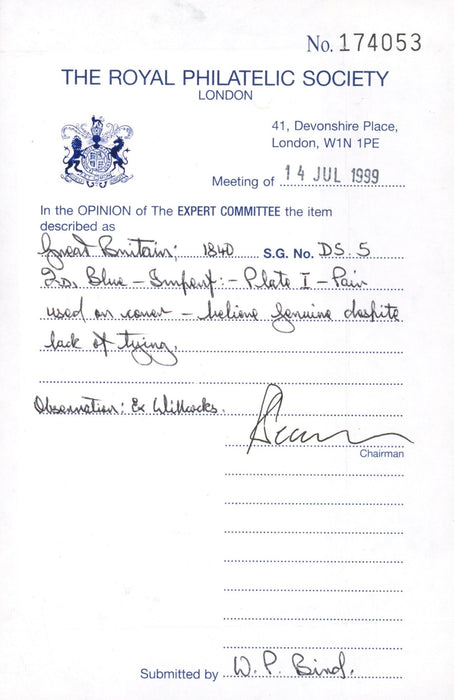 No. 174053
THE ROYAL PHILATELIC SOCIETY
LONDON
41, Devonshire Place,
London, W1N 1PE
Meeting of 14 JUL 1999
In the OPINION of The EXPERT COMMITTEE the item
described as
Great Britain; 1840 S.G. No. DS. 5
2d. Blue - Imperf:- Plate I - Pair
used on cover - believe genuine despite
lack of tying.
Observation: Ex Willcocks.
Chairman
Submitted by W. P. Bind.